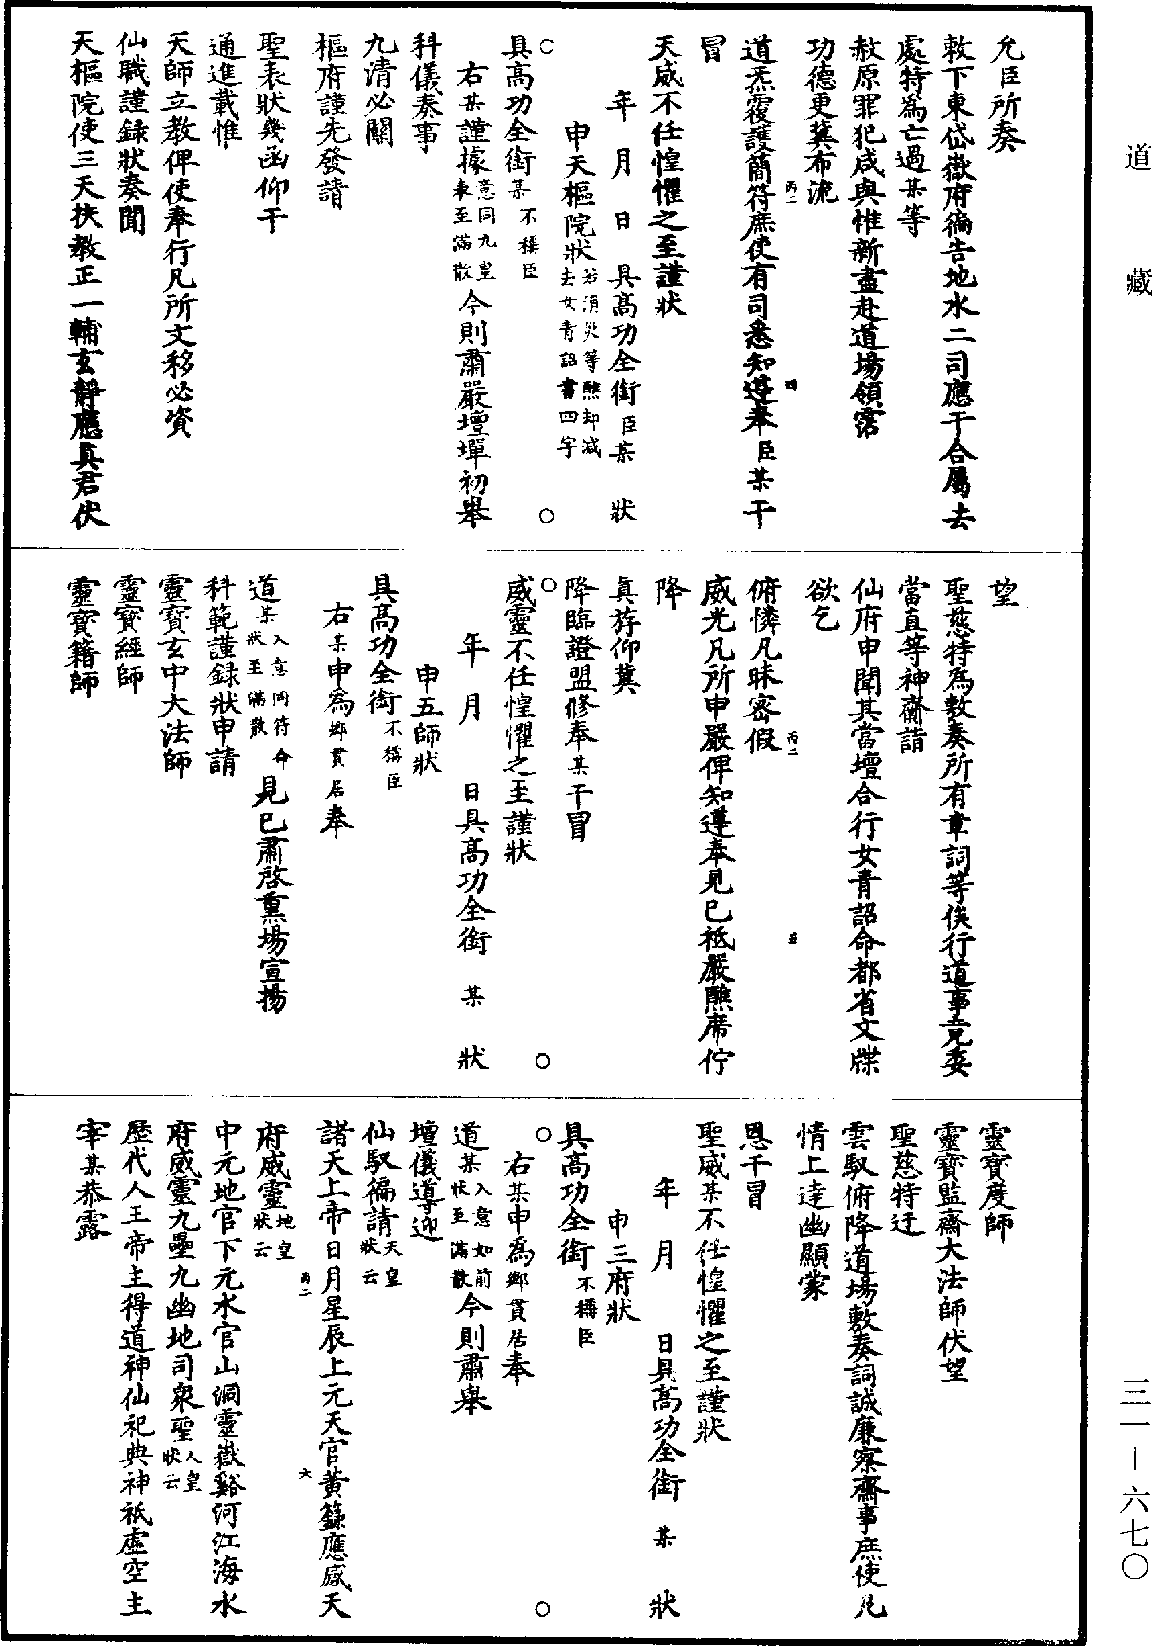 道藏
三一—六七〇
允臣所奏
敕下東岱嶽府徧告地水二司應干合屬去
處特為亡過某等
赦原罪犯咸與惟新盡赴道場領霑
功德更冀布流
道炁覆護簡符庶使有司悉知遵奉臣某干
冒
天威不任惶懼之至謹狀
年　月　日　具高功全銜臣某　狀
申天樞院狀若須災等醮却減去女青詔書四字
具高功全銜某不稱臣
右某謹據意同九皇表至滿散今則肅嚴壇墠初舉
科儀奏事
九清必關
樞府謹先發請
聖表狀幾函仰干
通進載惟
天師立教俾使奉行凡所文移必資
仙職謹録狀奏聞
天樞院使三天扶教正一輔玄靜應真君伏
望
聖慈特為敷奏所有章詞等俟行道事竟委
當直等神齎詣
仙府申聞其當壇合行女青詔命都省文牒
欲乞
俯憐凡昧密假
威光凡所申嚴俾知遵奉見已祗嚴醮席佇
降
真斿仰冀
降臨證盟修奉某干冒
威靈不任惶懼之至謹狀
年　月　日具高功全銜　某　狀
申五師狀
具高功全銜不稱臣
右某申為鄉貫居奉
道某入意同符命狀至滿散見已肅啓熏場宣揚
科範謹録狀申請
靈寶玄中大法師
靈寶經師
靈寶籍師
靈寶度師
靈寶監齋大法師伏望
聖慈特迂
雲馭俯降道場敷奏詞誠廉察齋事庶使凡
情上達幽顯蒙
恩干冒
聖威某不任惶懼之至謹狀
年　月　日具高功全銜　某　狀
申三府狀
具高功全銜不稱臣
右某申為鄉貫居奉
道某入意如前狀至滿散今則肅舉
壇儀導迎
仙馭徧請天皇狀云
諸天上帝日月星辰上元天官黃籙應感天
府威靈地皇狀云
中元地官下元水官山洞靈嶽谿河江海水
府威靈九壘九幽地司衆聖人皇狀云
歷代人王帝主得道神仙祀典神祇虛空主
宰某恭露